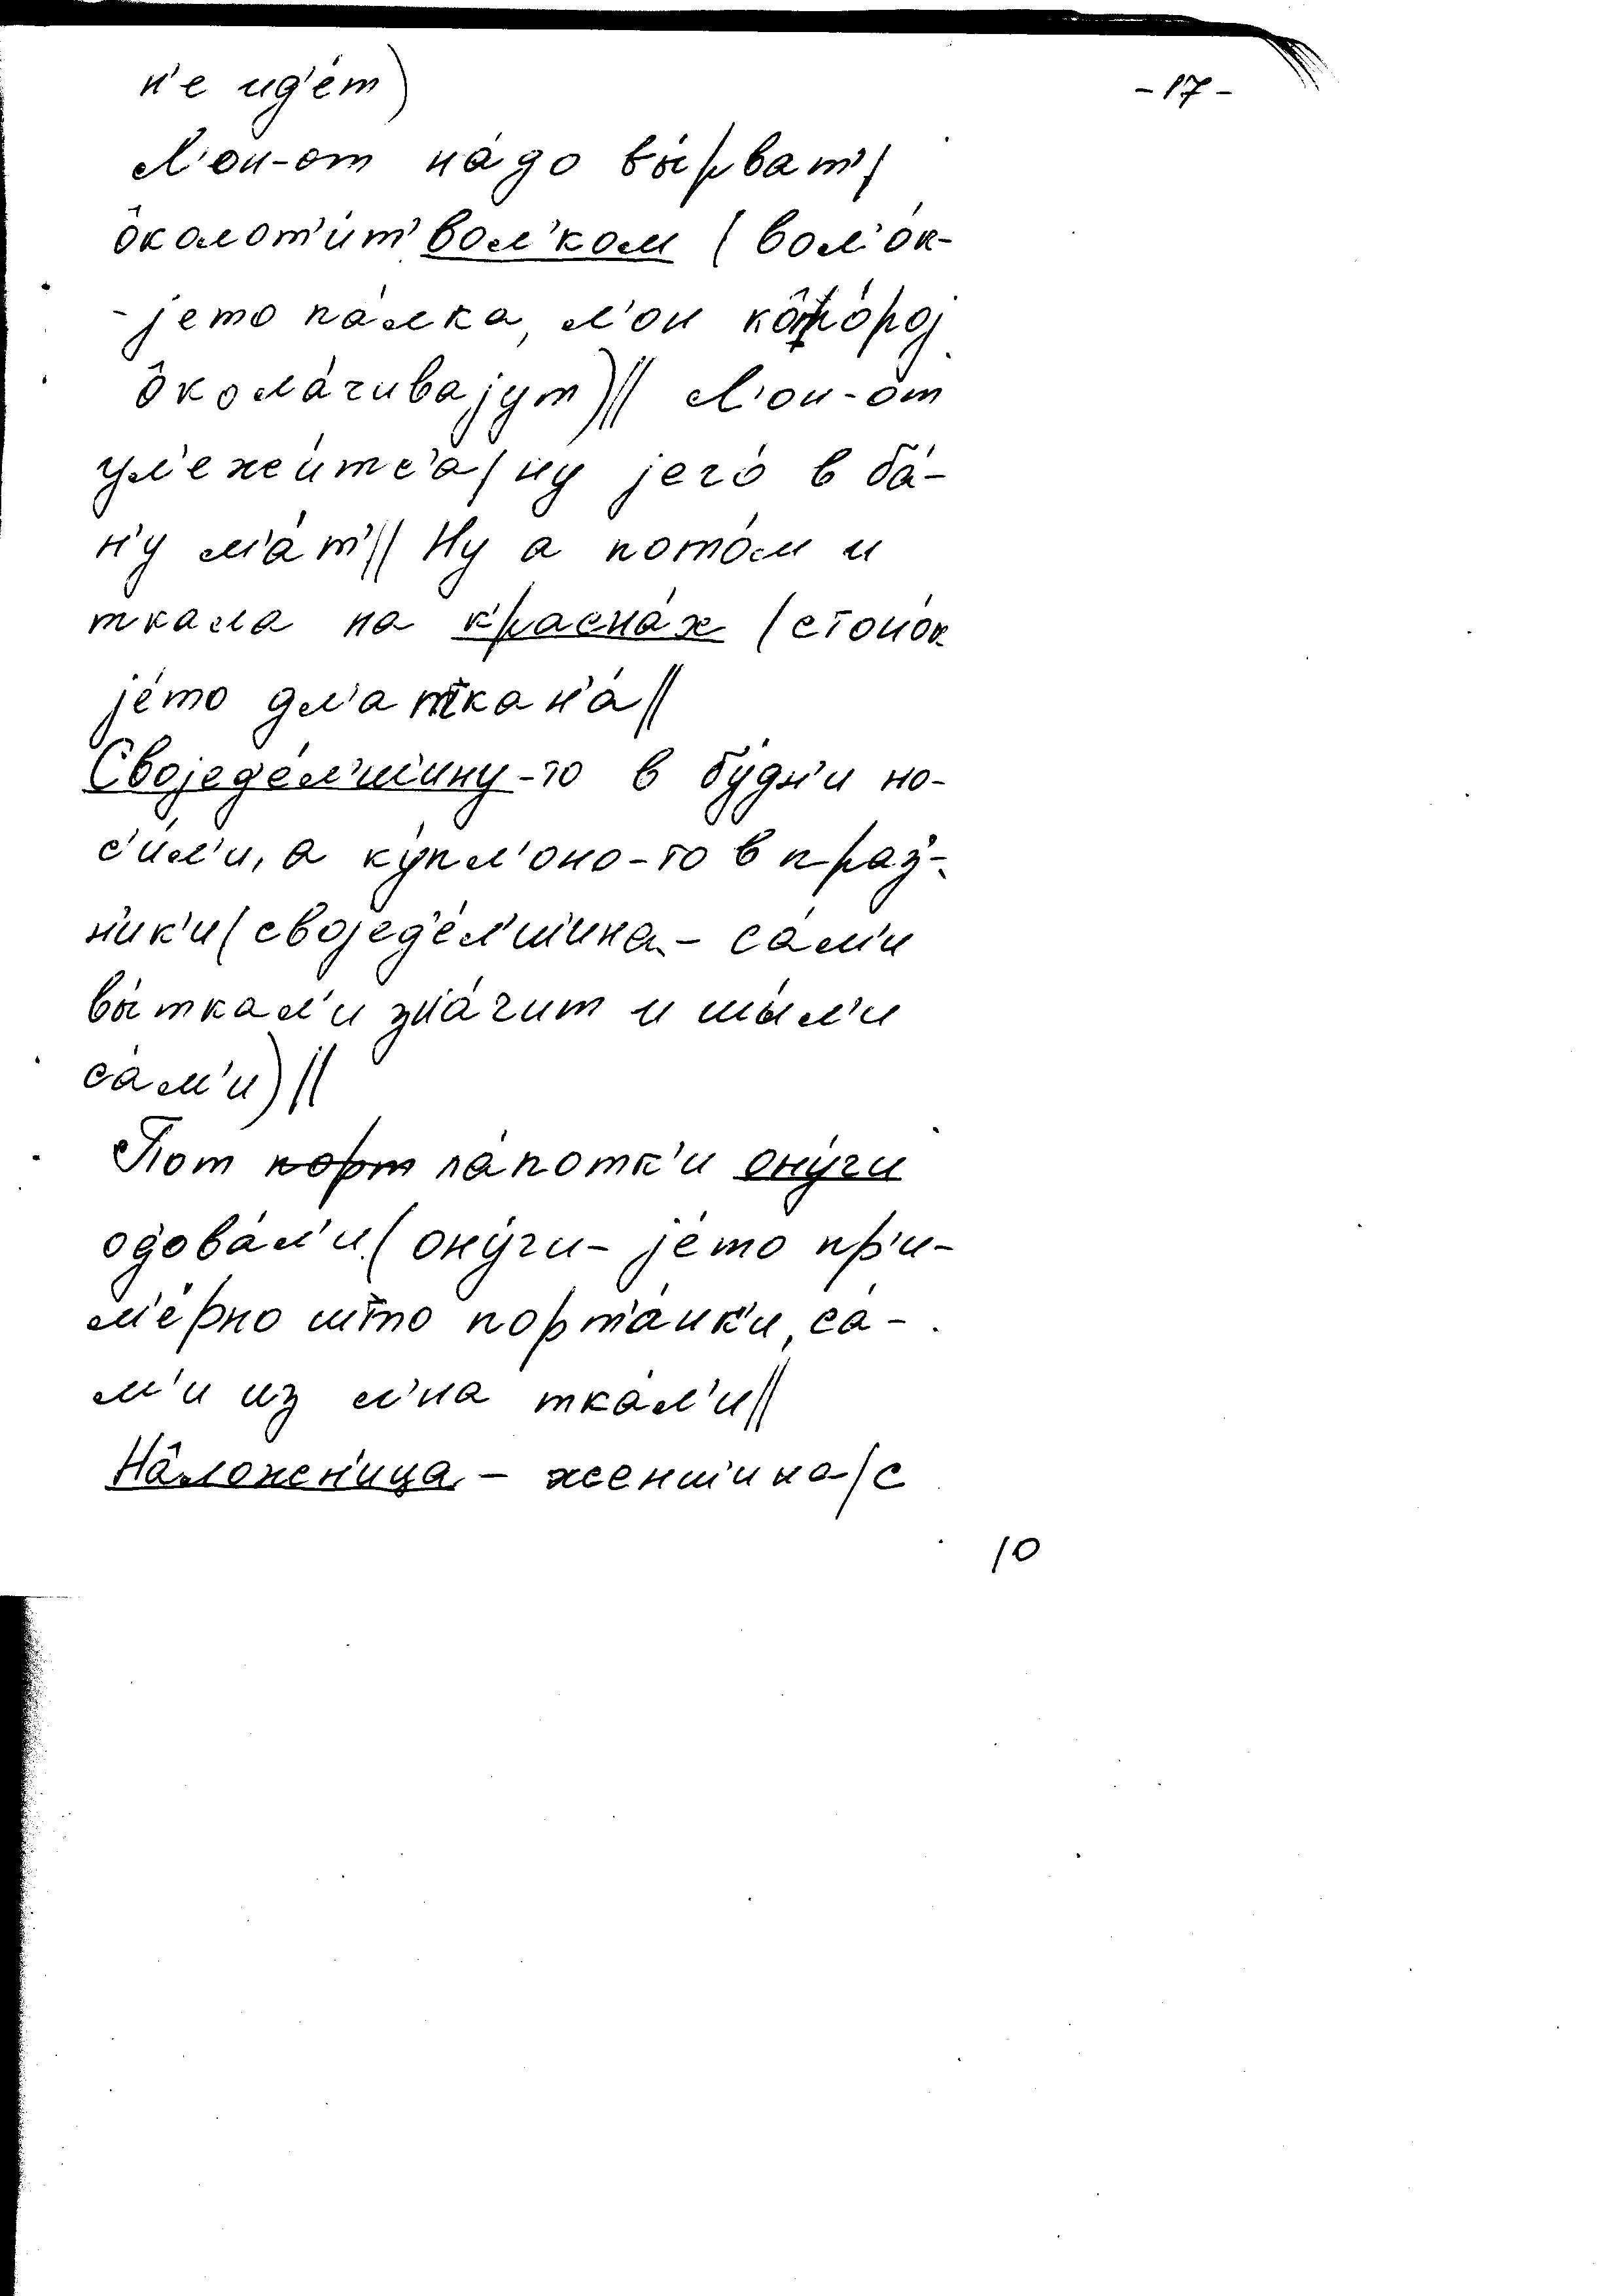 н'е ид'éт)
-17-
Л'он-от нáдо вы́рват'/
о̂колот'и́т' вол'ком (вол'óк-
-jето пáлка, л'он ко̂тóроj
о̂колáчиваjут)|| Л'он-от
ул'ежи́тс'а/ну jегó в бá-
н'у м'áт'|| Ну а потóм и
ткала на кр́аснáх (станóк
jéто дл'а ткан'á||
Своjед'éл'ш'ину-то в бу́дн'и но-
с'и́л'и, а ку́пл'оно-то в праз'-
н'ик'и (своjед'éл'ш'ина - сáм'и
вы́ткал'и знáчит и шы́л'и
сáм'и)||
Пот порт лáпотк'и ону́ги
одовáл'и (ону́ги - jéто пр'и-
м'éрно што порт'áнк'и, сá-
м'и из л'на ткáл'и||
На̂ложен'ица - женш'ина/с
10